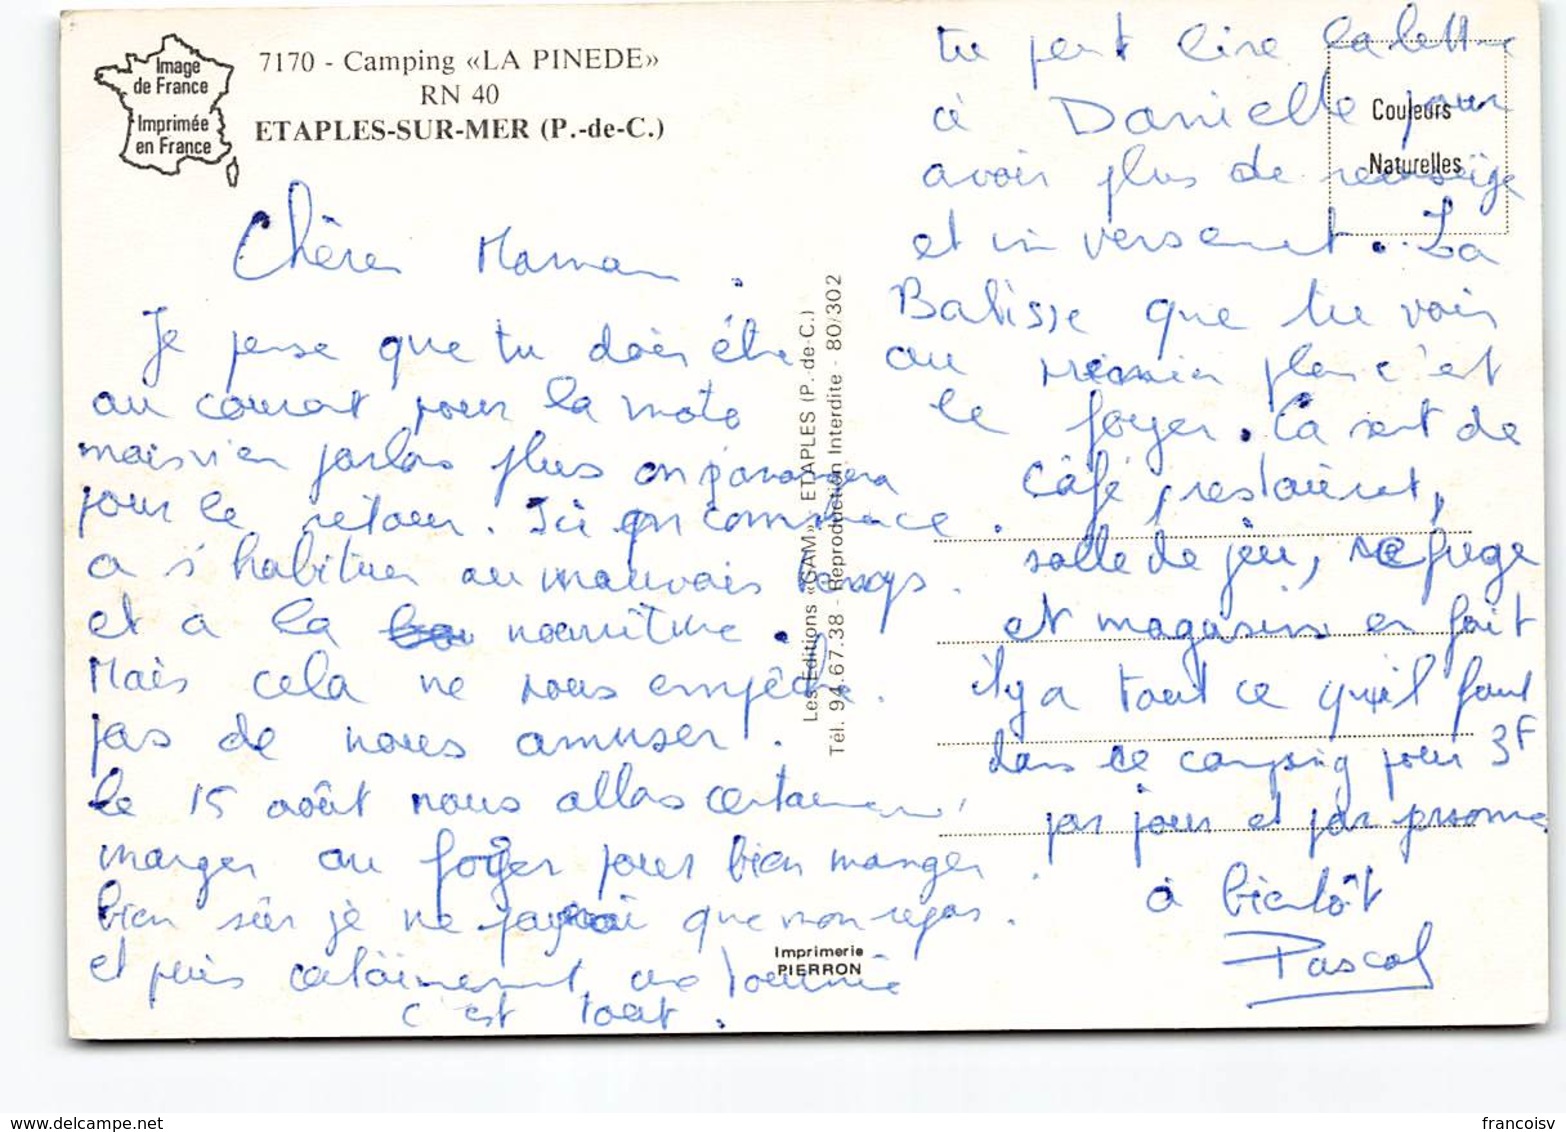 Image
de France
Imprimée
en France
7170 - Camping «LA PINEDE»
RN 40
ETAPLES-SUR-MER (P.-de-C.)
Chère Maman.
Je pense que tu dois être
au courant pour la moto
mais n'en parlons plus on
pour le retour. Ici on commence
a s'habituer au mauvais temps.
et a la nourriture.
Mais cela ne nous empêche
pas de nous amuser.
le 15 août nous allons certainement
manger au foyer pour bien manger
bien sûr je ne que mon repas.
et puis certainement une tournée
c'est tout.
Les Editions «GAM» ETAPLES (P.-de-C.)
Tél. 94.67.38 - Reproduction Interdite - 80/302
Imprimerie
PIERRON
Couleurs
Naturelles
tu peut lire la lettre
à Danielle pour
avoir plus de
et inversement. La
Batisse que tu vois
au premier plan c'est
le foyer. Ca sert de
câfé, restaurant,
salle de jeu, refuge
et magasins en fait
il y a tout ce qu'il faut
dans ce camping pour 3F
par jour et par personne
à bientôt
Pascal
delcampe.net
francoisv